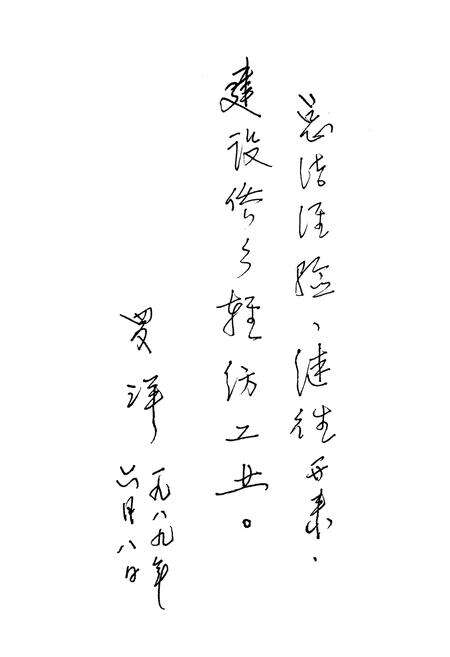 总结经验、继往开来，
建设侨乡轻纺工业。
罗洋
一九八九年
六月八日